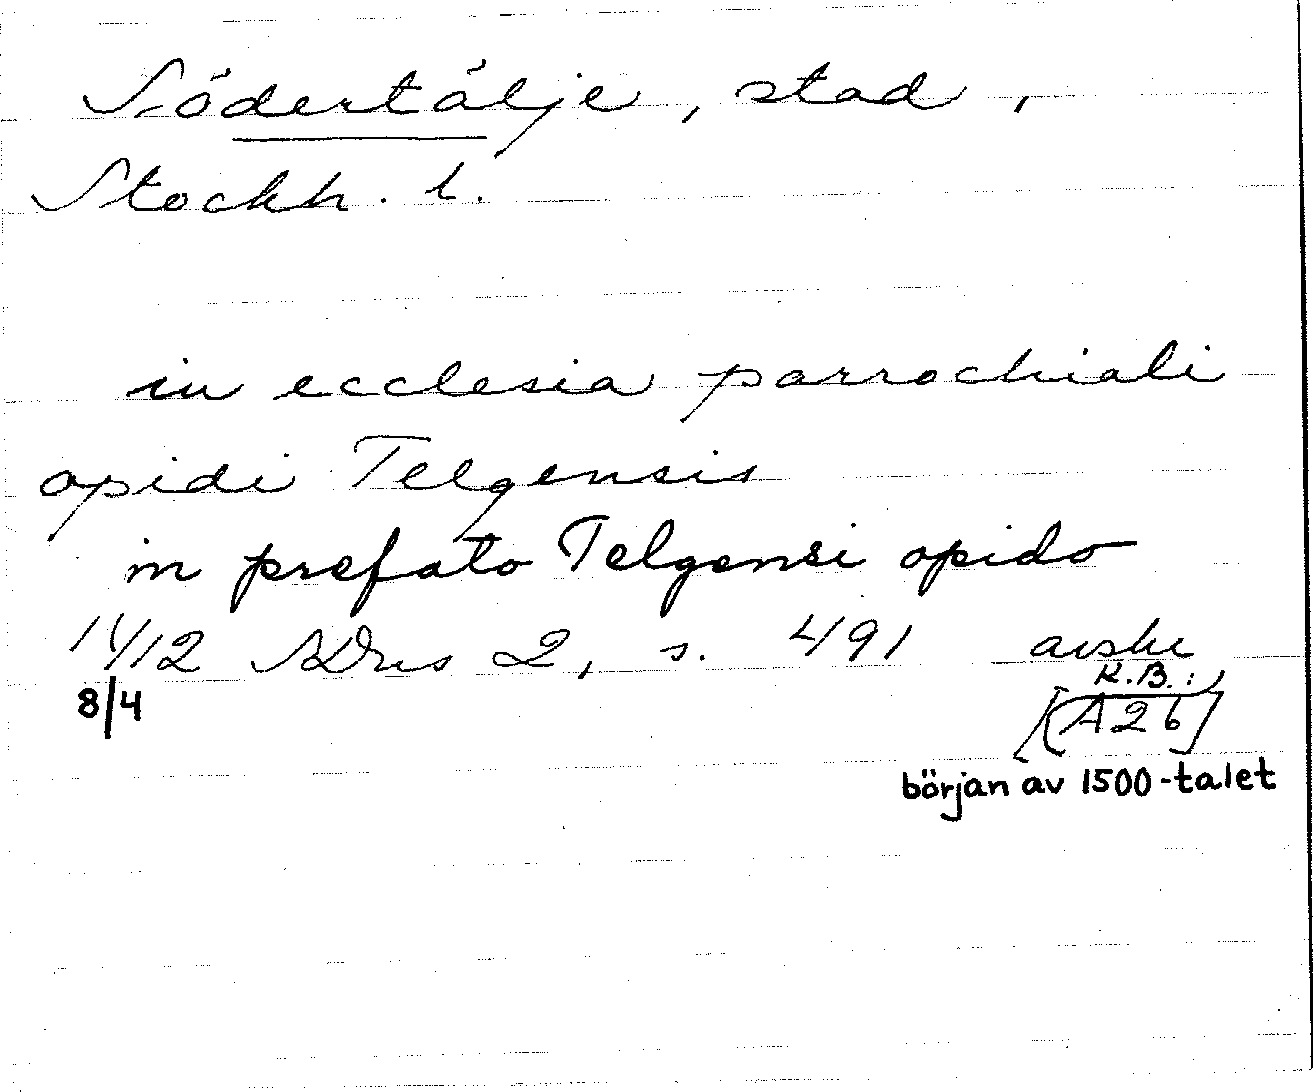 Södertälje, stad,
Stockh. l.
in ecclesia parrochiali
opidi Telgensis
in prefato Telgensi opido
1412 SDns 2, s. 491 avskr
8/4 K.B.:
[(A26]
början av 1500-talet